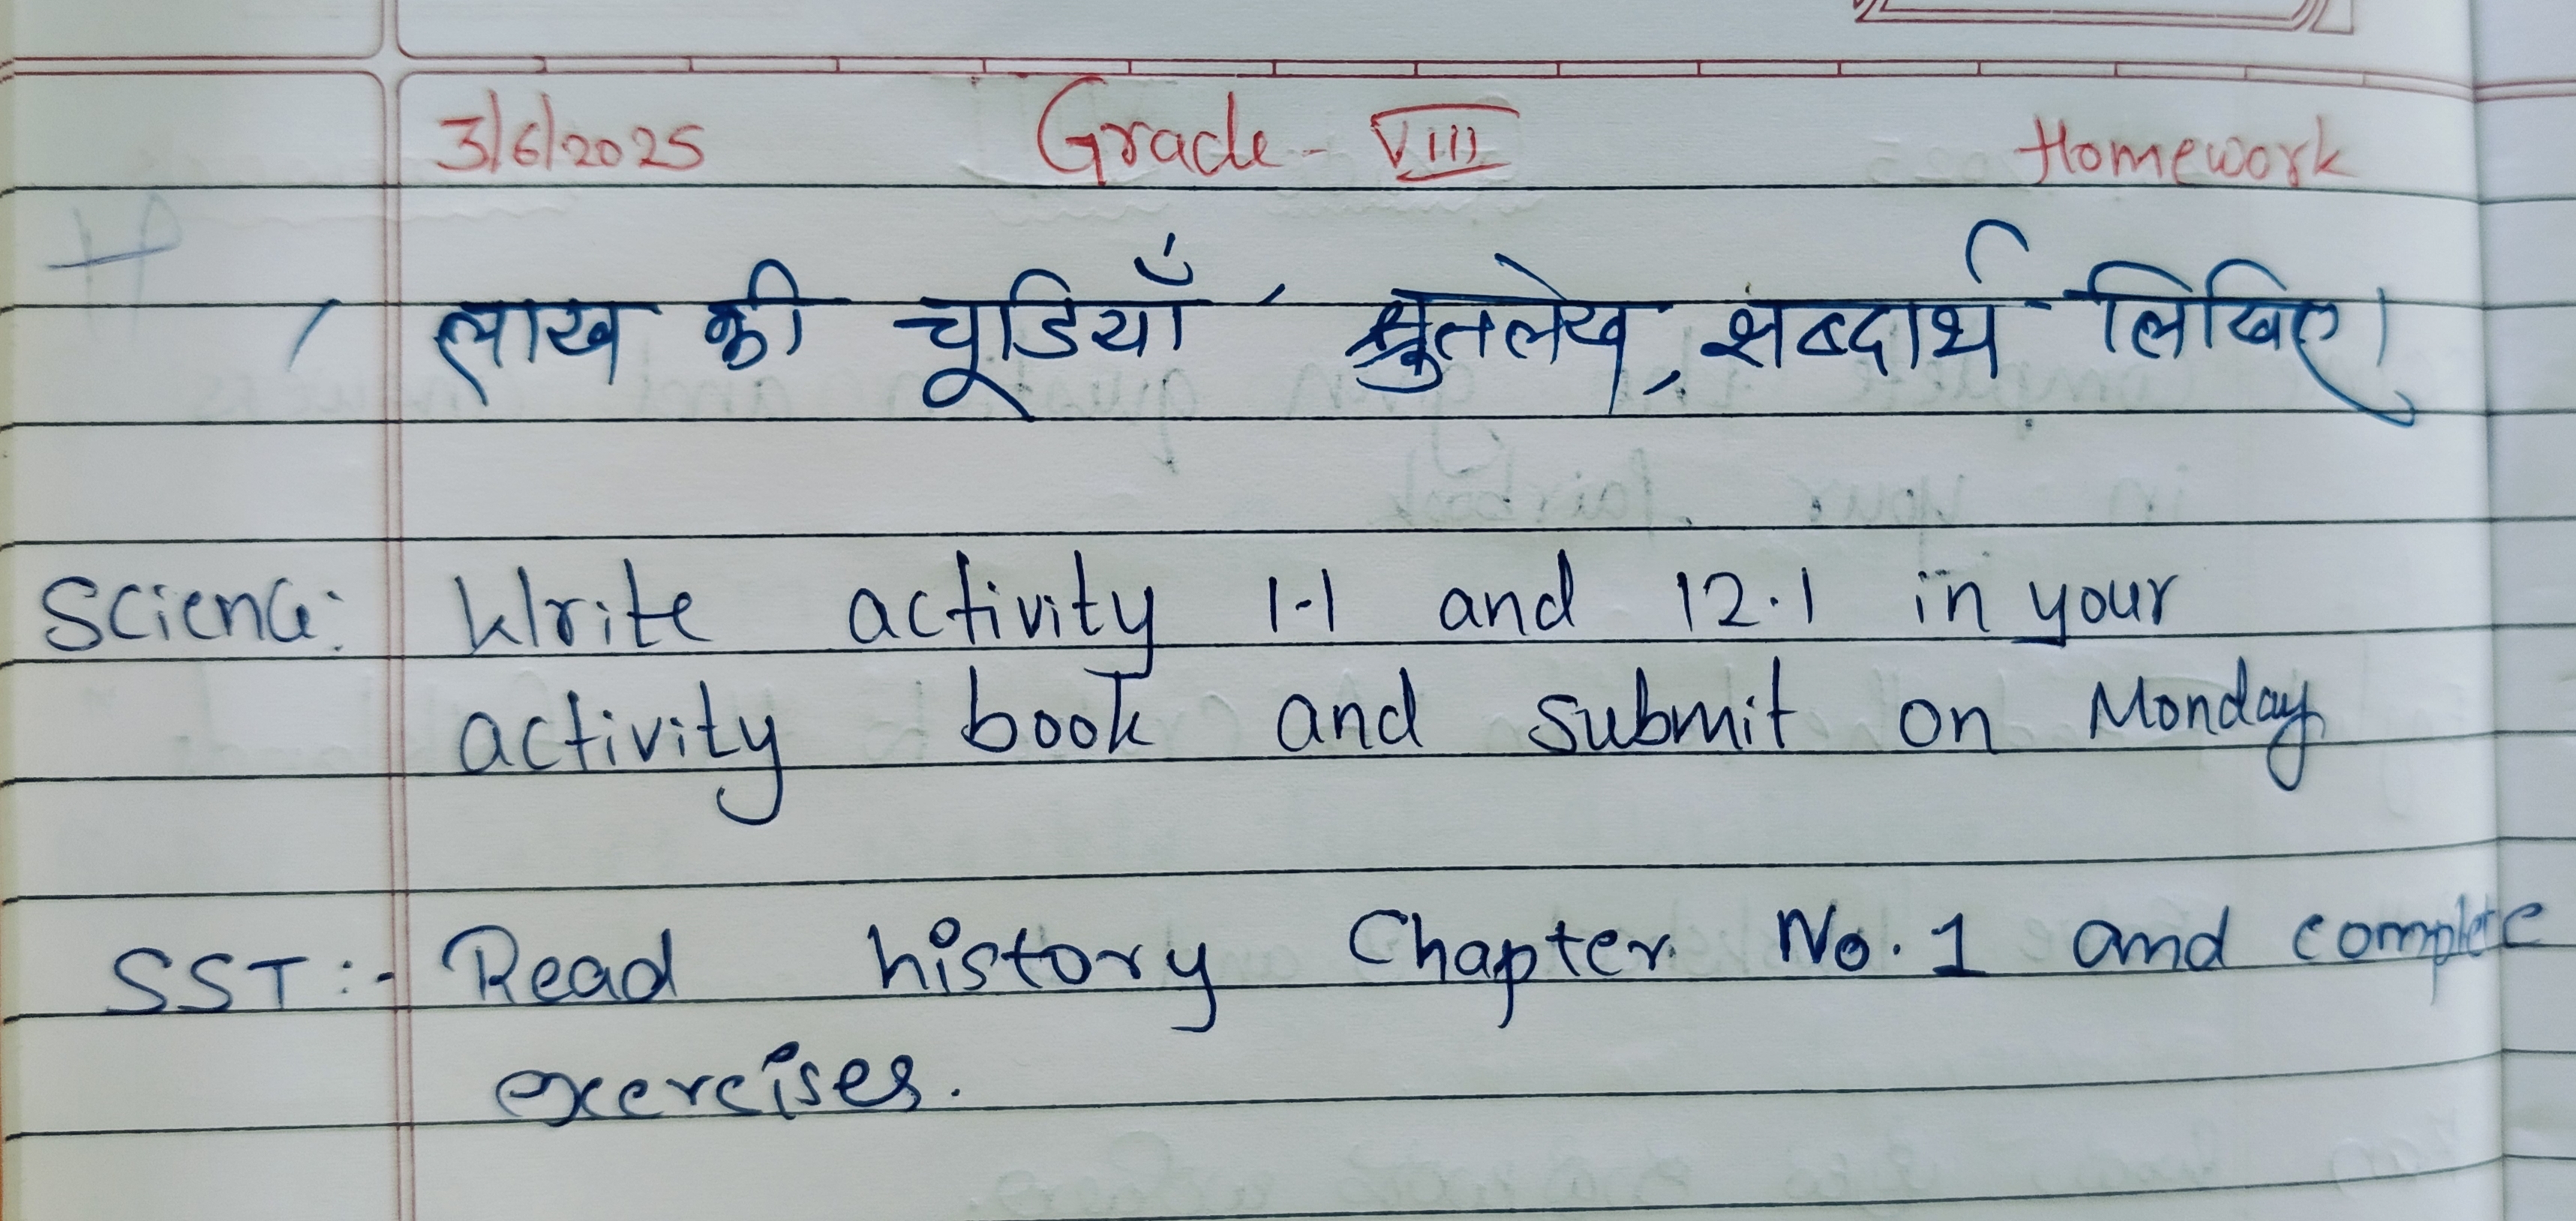 3/6/2025 Grade - VIII Homework
' लाख की चूडियाँ ' श्रुतलेख, शब्दार्थ लिखिए।
Science: Write activity 1.1 and 12.1 in your
activity book and submit on Monday
SST :- Read history Chapter No. 1 and complete
exercises.